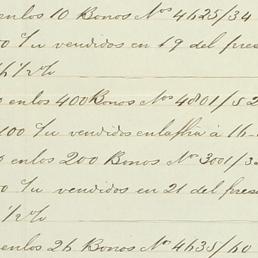 enlos 10 Bonos Nos 4625/34
00 c/u vendidos en 19 del pres
1/2 %
enlos 400 Bonos Nos 4801/52
100 c/u vendidos en la fha á 16-
enlos 200 Bonos Nos 3001/32
0 c/u vendidos en 21 del pres
1/2 %
enlos 26 Bonos Nos 4635/60